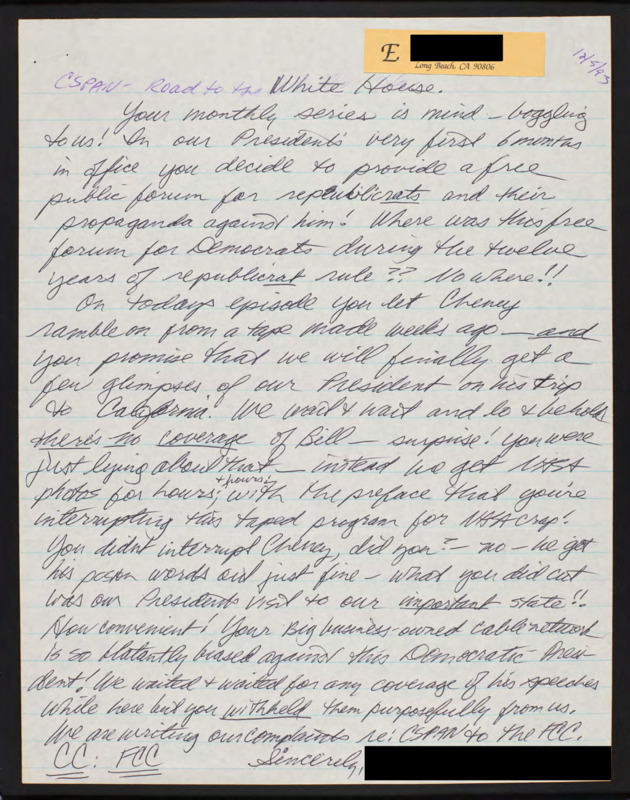 E
Long Beach, CA 90806
12/5/93
CSPAN - Road to the White House.
Your monthly series is mind-boggling
to us! In our President's very first 6 months
in office you decide to provide a free
public forum for republicrats and their
propaganda against him! Where was this free
forum for Democrats during the twelve
years of republicrat rule?? No where!!
On todays episode you let Cheney
ramble on from a tape made weeks ago — and
you promise that we will finally get a
few glimpses of our President on his trip
to California! We wait & wait and lo & behold
there's no coverage of Bill — surprise! You were
just lying about that — instead we get NASA
+ hours!
photos for hours; with the preface that you're
interrupting this taped program for NASA crap!
You didn't interrupt Cheney, did you? — no — he got
his poson words out just fine — what you did cut
was our Presidents visit to our important state!!
How convenient! Your Big business-owned cable network
is so blatantly biased against this Democratic Presi-
dent! We waited + waited for any coverage of his speeches
while here but you withheld them purposefully from us.
We are writing our complaints re: CSPAN to the FCC.
CC: FCC Sincerely,